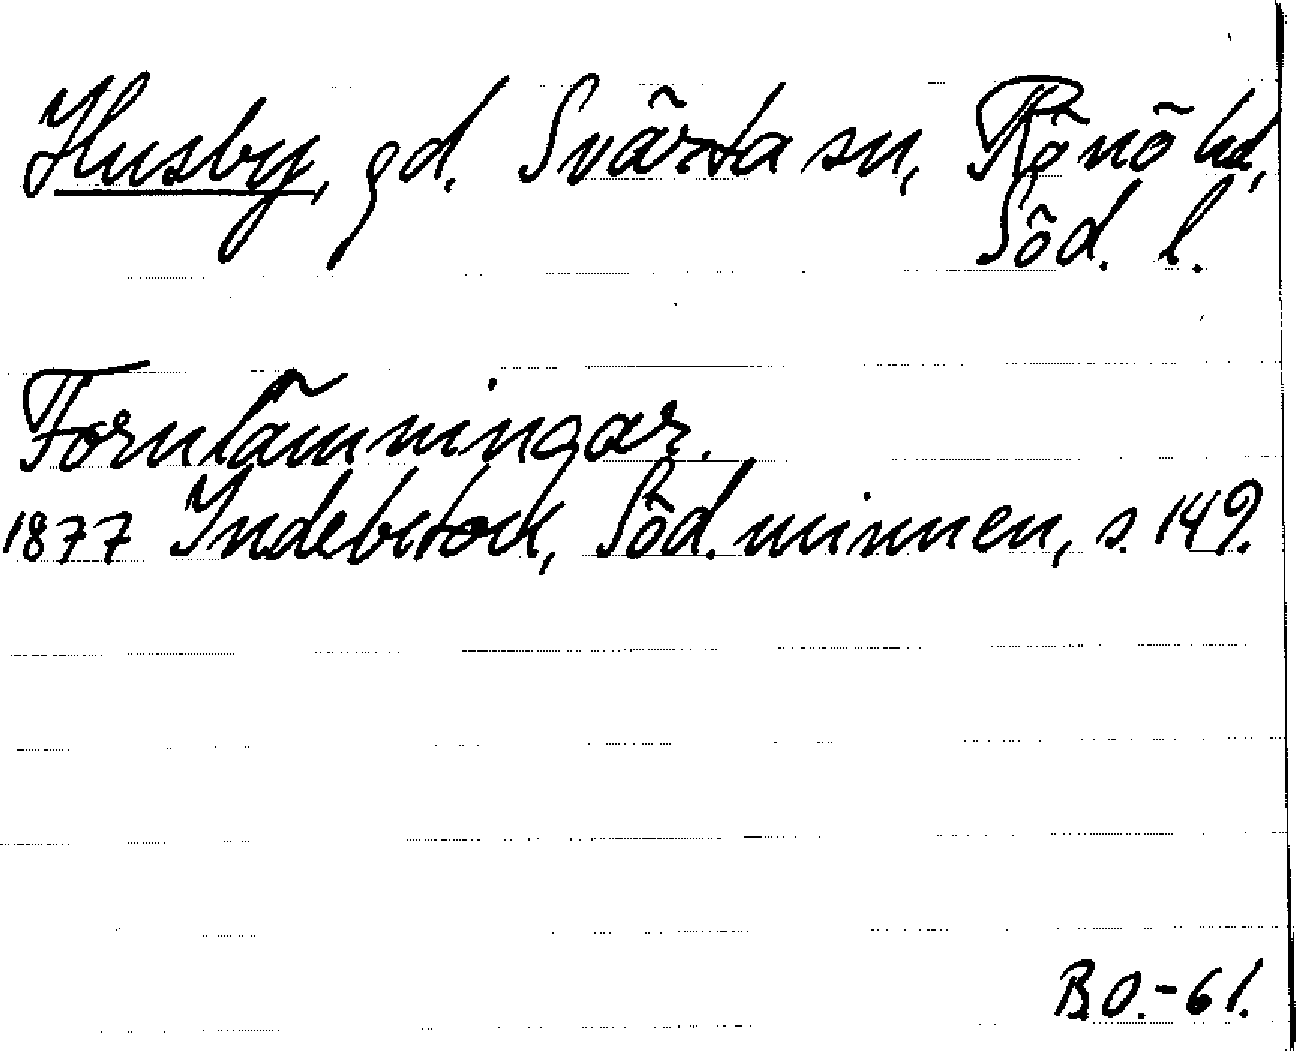 Husby, gd. Svärta sn, Rönö hd,
Söd. l.
Fornlämningar.
1877 Indebetou, Söd. minnen, s. 149.
B.O.-61.